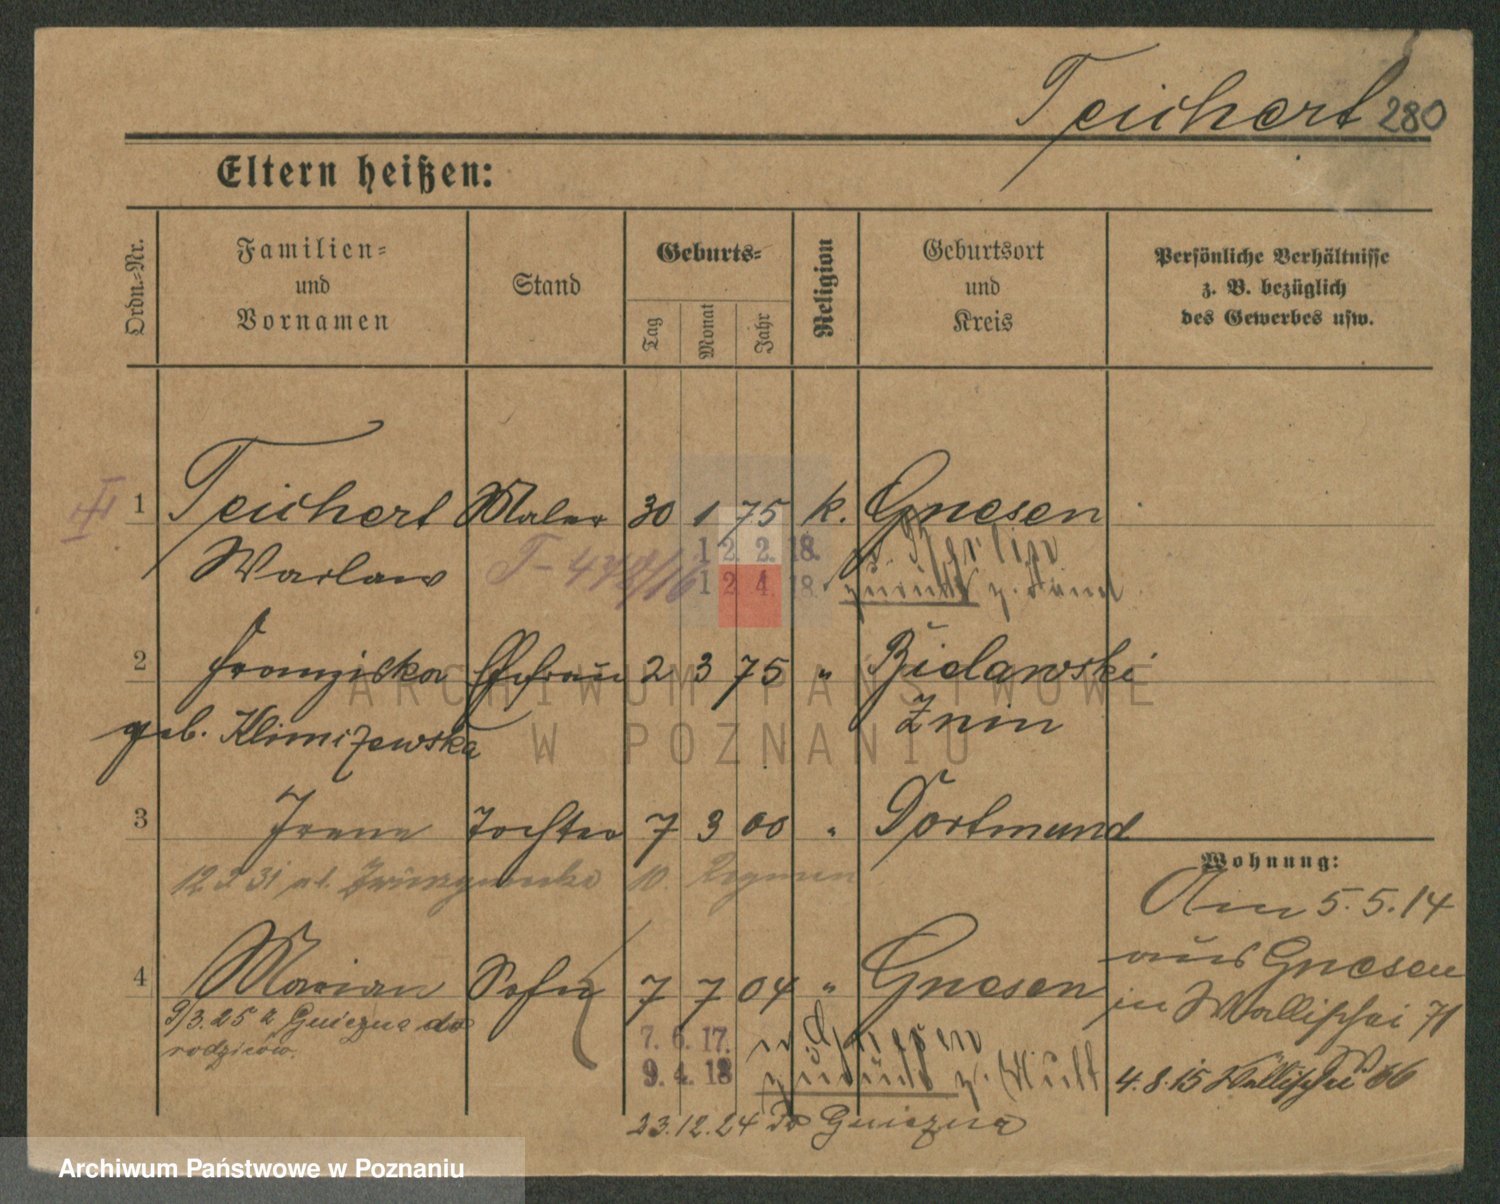 Teichert 280
Eltern heißen:
Ordn.-Nr.
Familien-
und
Vornamen
Stand
Geburts-
Tag
Monat
Jahr
Religion
Geburtsort
und
Kreis
Persönliche Verhältnisse
z. B. bezüglich
des Gewerbes usw.
1 Teichert Maler 30 1 75 k. Gnesen
Waclaw
12. 2. 18. n. Berlin
12. 4. 18. zurück z.
2 Franziska Ehefrau 2 3 75 " Bielawski
geb. Klimizewska Znin
3 Irene Tochter 7 3 00 " Dortmund
12 2 31 ul.
Wohnung:
Am 5.5.14
aus Gnesen
in Wallischei 71
4.8.15 Wallischei 66
4 Marian Sohn 7 7 04 " Gnesen
9/3.25 z Gniezna do
rodziców.
7. 6. 17. n. Gnesen
9. 4. 18 zurück z.
23.12.24 do Gniezna
ARCHIWUM PAŃSTWOWE
W POZNANIU
Archiwum Państwowe w Poznaniu